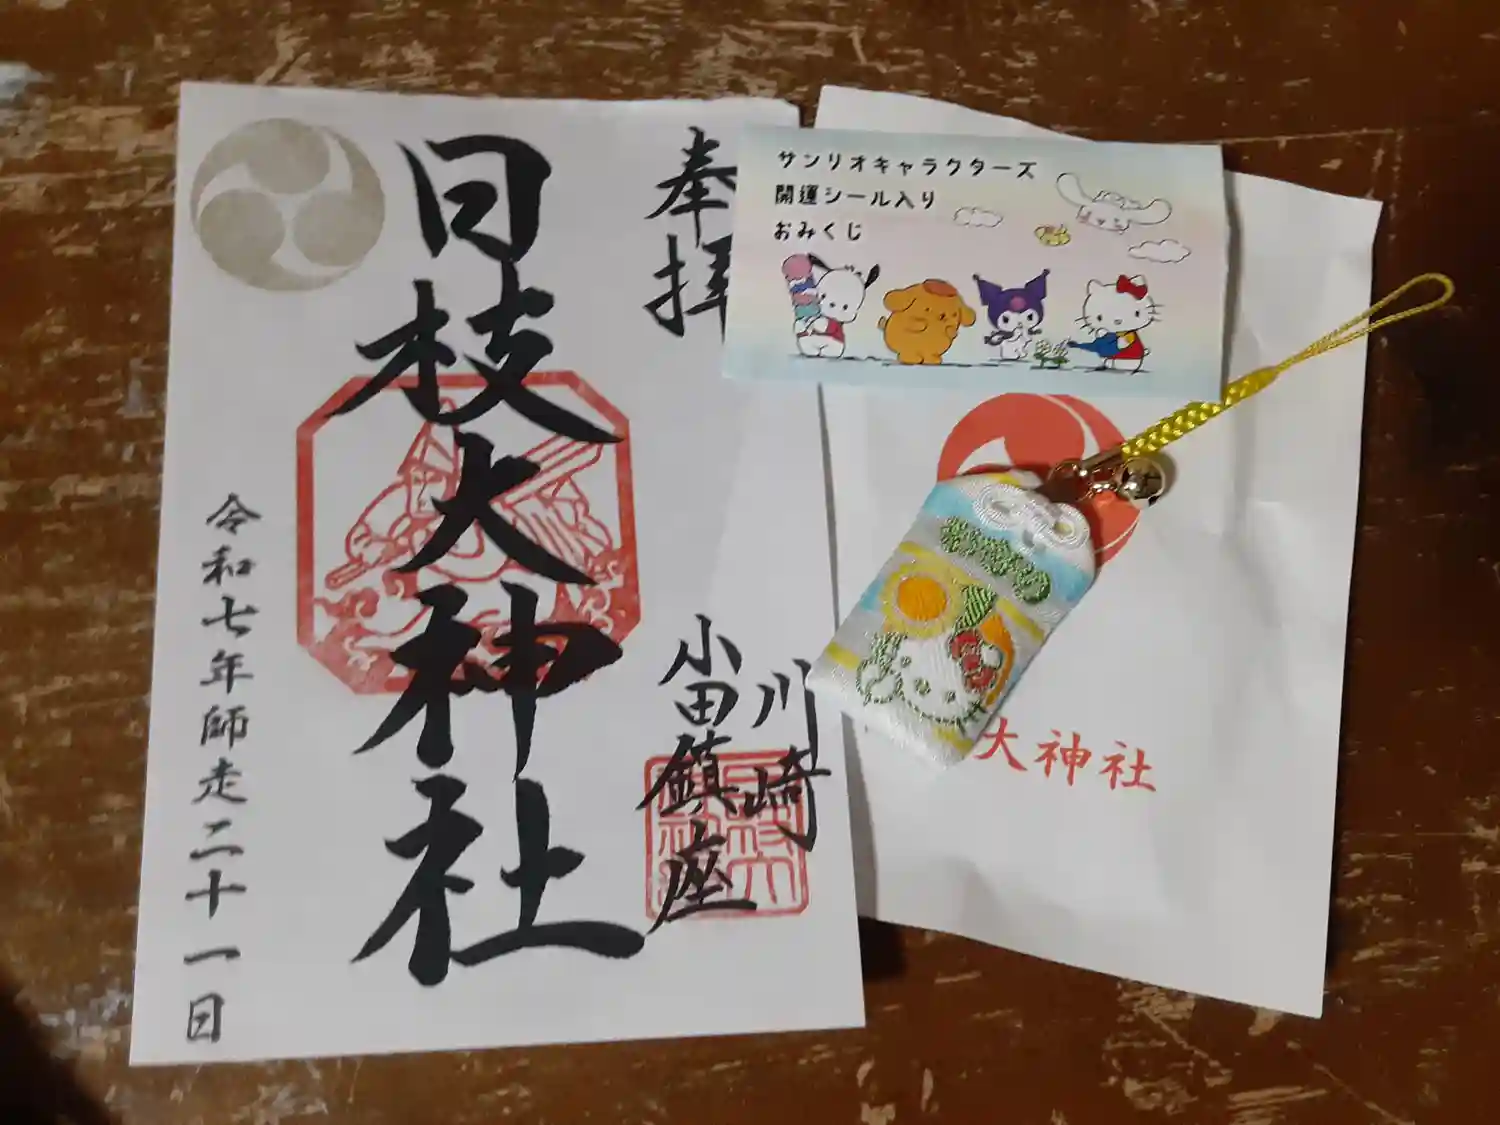 奉拝
川崎
小田鎮座
日枝大神社
令和七年師走二十一日
サンリオキャラクターズ
開運シール入り
おみくじ
おまもり
大神社